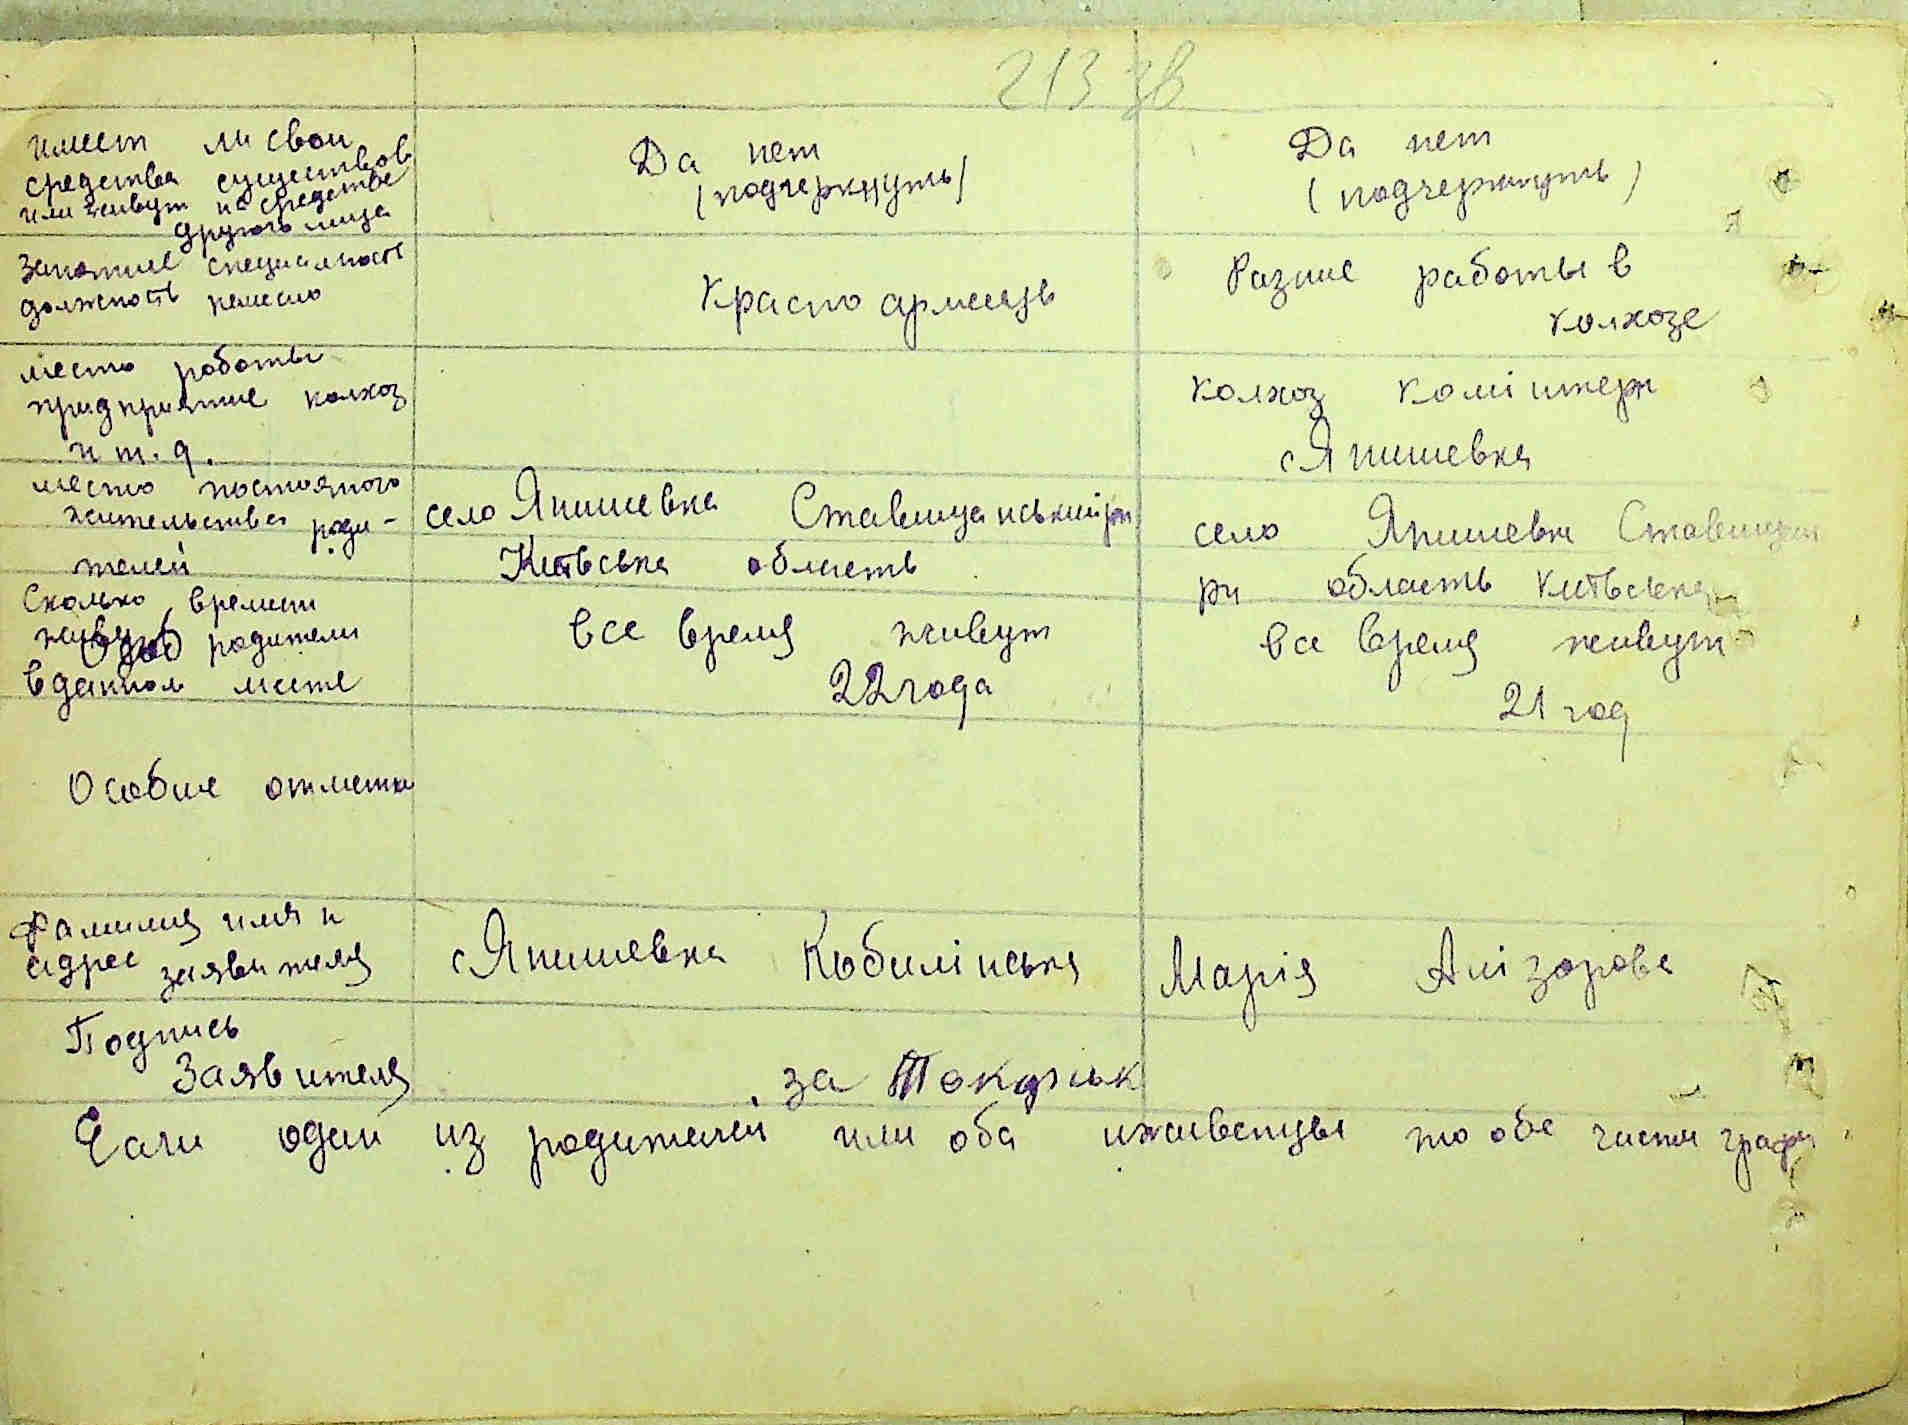 213 зв
имеет ли свои
средства существов
или живут на средстве
другого лица
Да нет
(подчеркнуть)
Да нет
(подчеркнуть)
Занятие специалность
должность ремесло
Красно армеець
Разние работы в
колхозе
место работы
придприятие колхоз
и т. д.
колхоз Комінтерн
с Япишевка
место постояного
жительства роди-
телей
село Япишевка Ставищанський рн
Київська область
село Япишевка Ставищан
рн область Київська
Сколько времени
живут родители
в данном месте
все время живут
22 года
все время живут
21 год
Особие отметки
Фамилия имя и
адрес заявителя
с Япишевка Кобилінська
Марія Алізарова
Подпись
Заявителя
за
Если один из родителей или оба иживенцы то обе части графи